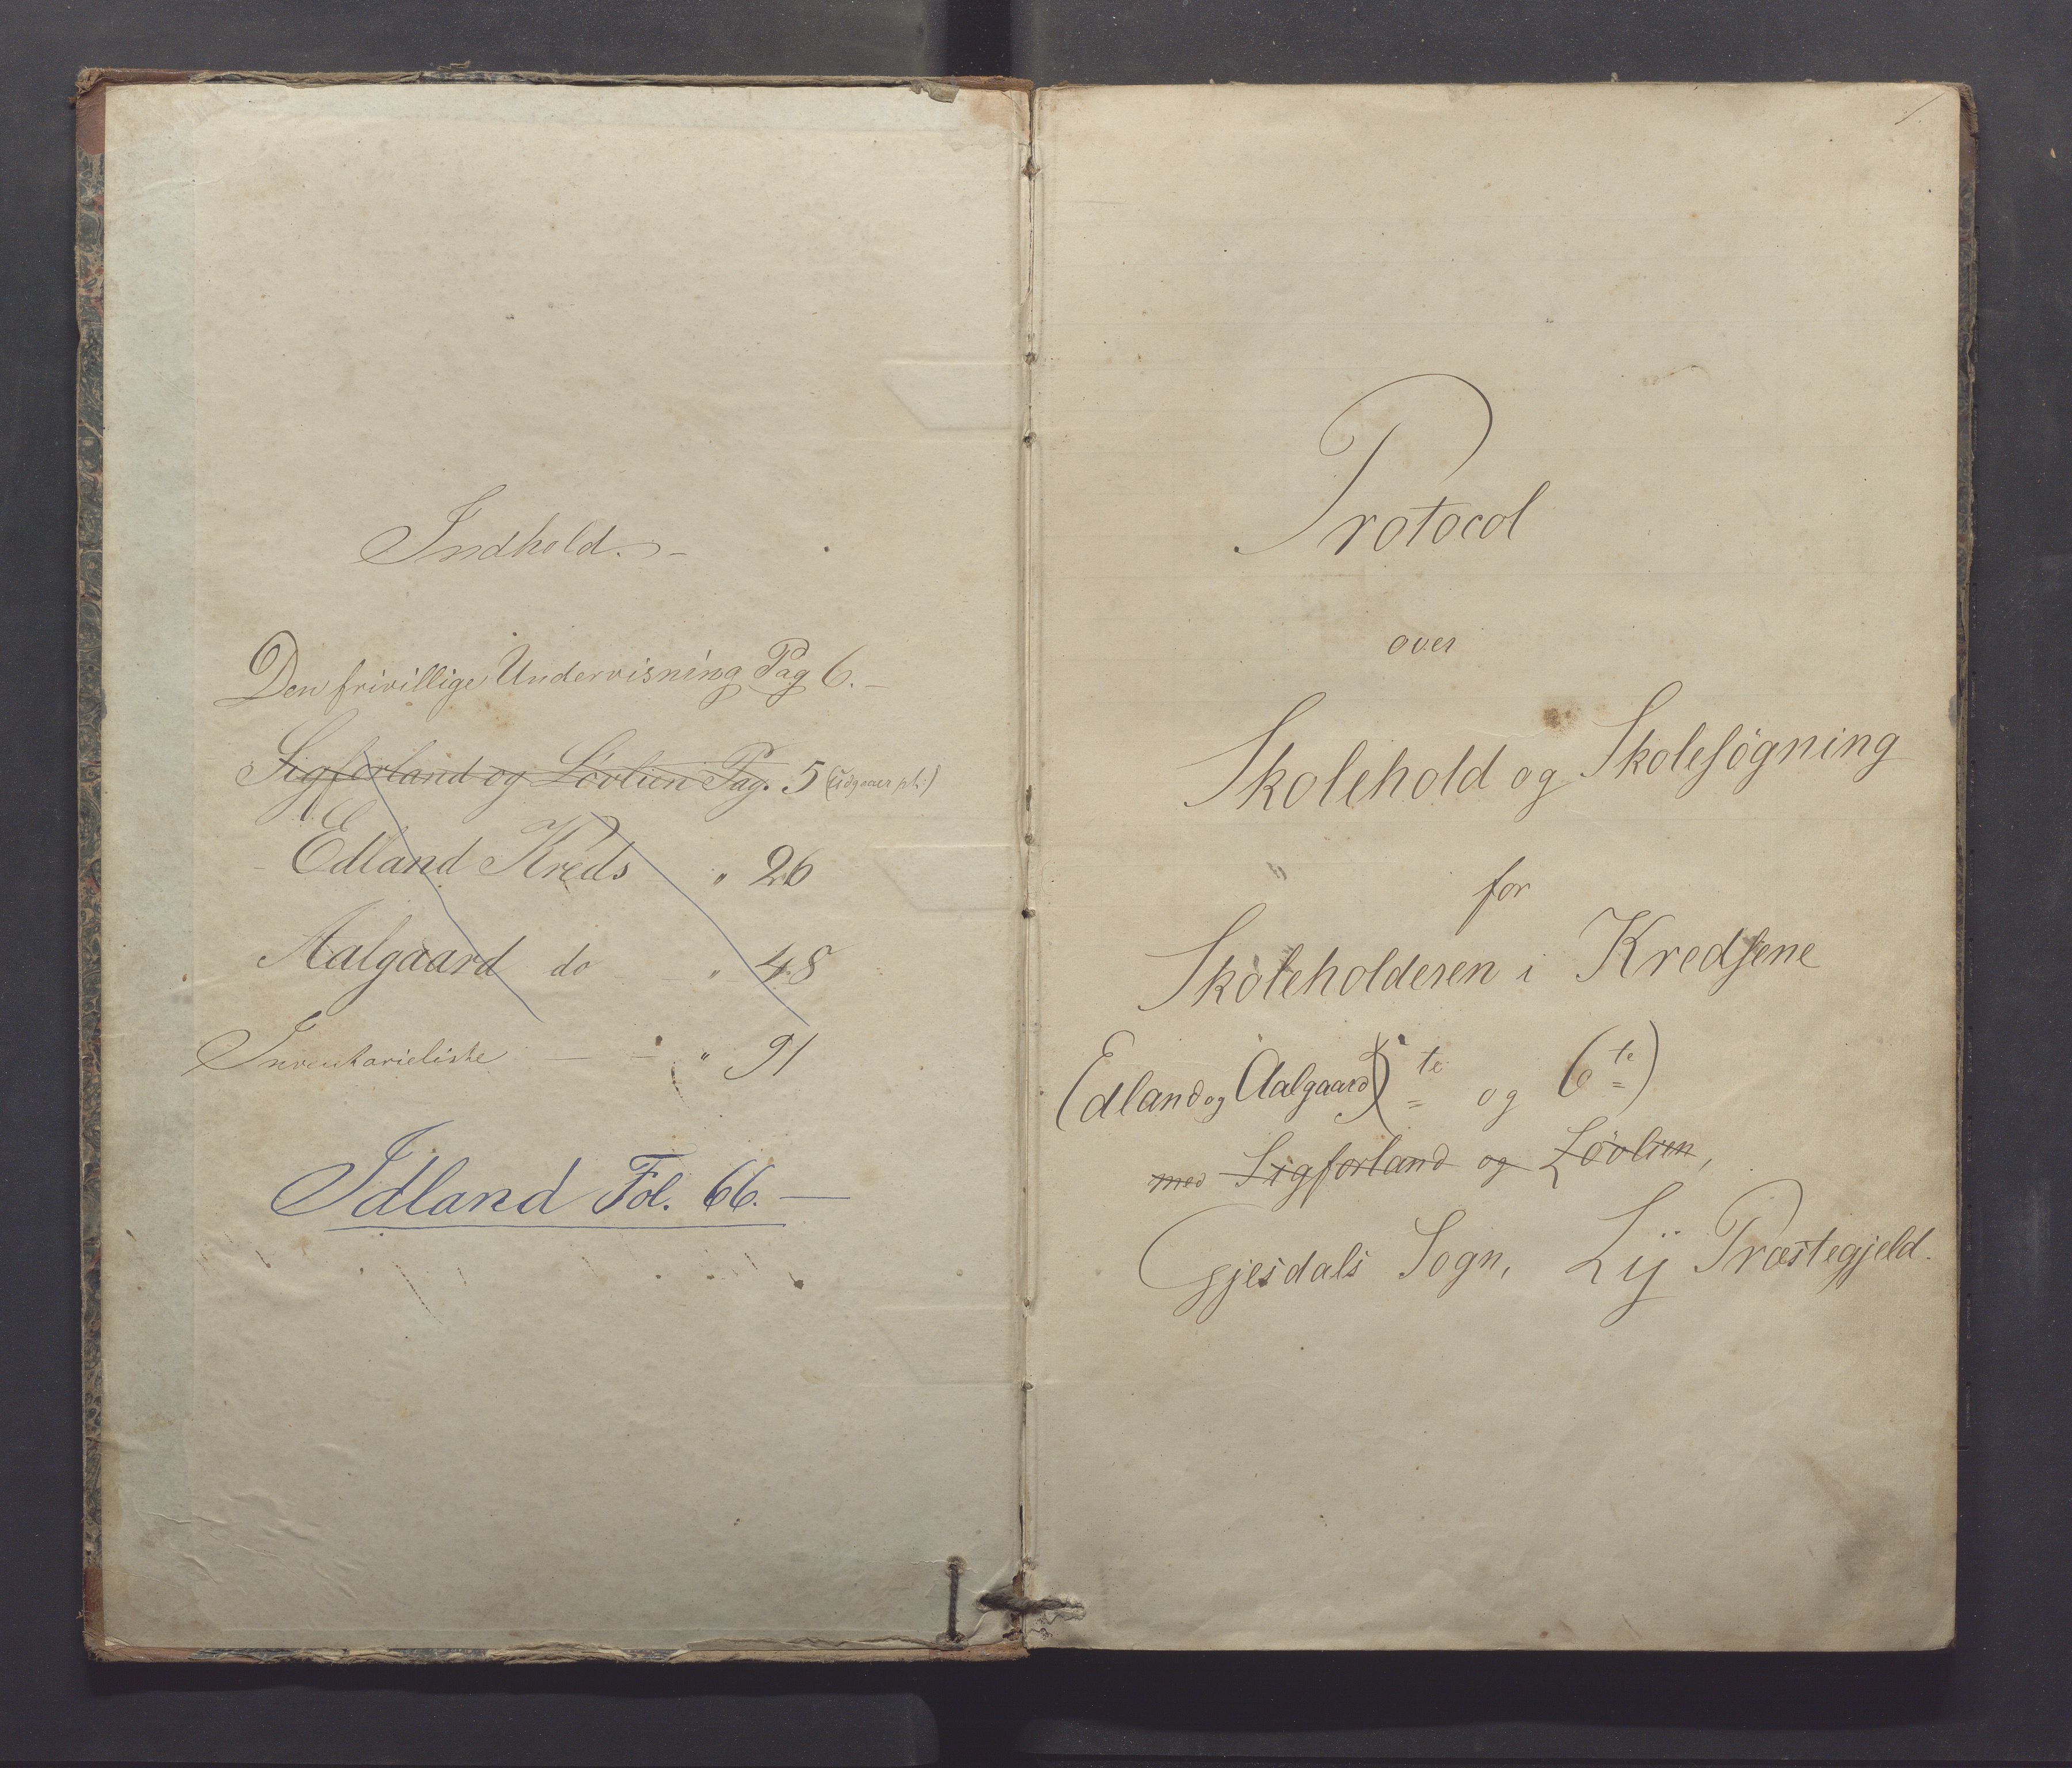 Indhold. -
Den frivillige Undervisning Pag 6. -
Sigforland og Lövlien Pag. 5 (Udgaaer pt.)
Edland Kreds " 26
Aalgaard do " 48
Inventarieliste — - " 91
Idland Fol. 66. —
1.
Protocol
over
Skolehold og Skolesögning
for
Skoleholderen i Kredsene
(Edland og Aalgaard) te og 6te)
med Sigforland og Lövlien,
Gjesdals Sogn, Lÿ Præstegjeld.